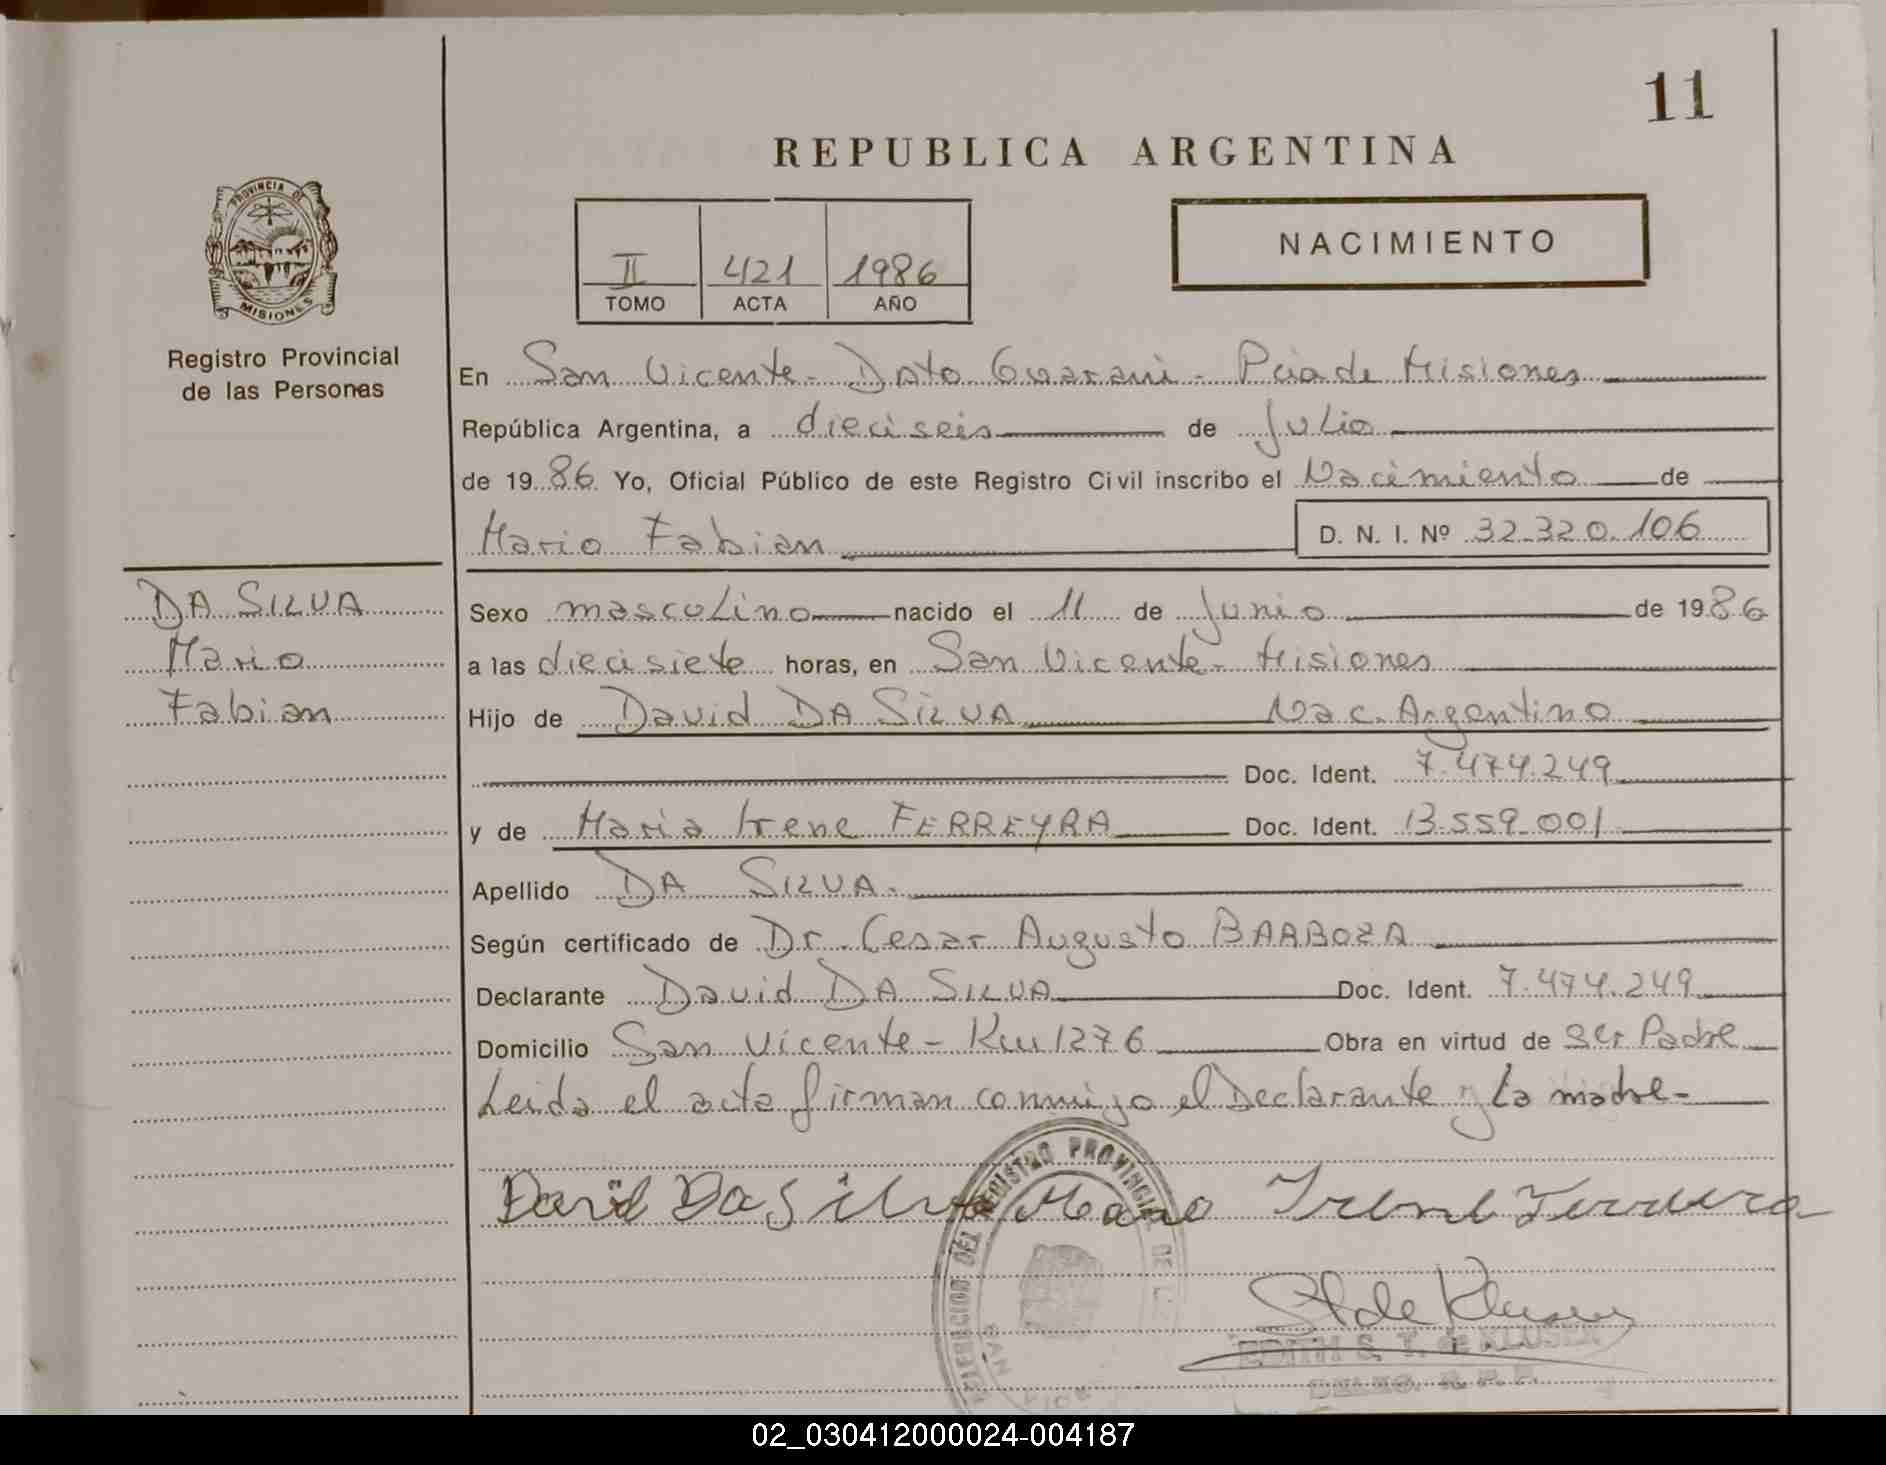 11
REPUBLICA ARGENTINA
PROVINCIA DE
MISIONES
Registro Provincial
de las Personas
II 421 1986
TOMO ACTA AÑO
NACIMIENTO
En San Vicente - Dpto Guarani - Pcia de Misiones
República Argentina, a dieciseis de Julio
de 1986 Yo, Oficial Público de este Registro Civil inscribo el Nacimiento de
Mario Fabian D. N. I. Nº 32.320.106
DA SILVA
Mario
Fabian
Sexo masculino nacido el 11 de Junio de 1986
a las diecisiete horas, en San Vicente - Misiones
Hijo de David DA SILVA Nac. Argentino
Doc. Ident. 7.474.249
y de Maria Irene FERREYRA Doc. Ident. 13.559.001
Apellido DA SILVA.
Según certificado de Dr. Cesar Augusto BARBOZA
Declarante David DA SILVA Doc. Ident. 7.474.249
Domicilio San Vicente - Km 1276 Obra en virtud de ser Padre
Leida el acta firman conmigo el Declarante y la madre-
David Da Silva Irene Ferreira
REGISTRO PROVINCIAL DE
SAN VICE
EDITH S. T. de KLUSEN
DELEG. R. P. P.
02_030412000024-004187